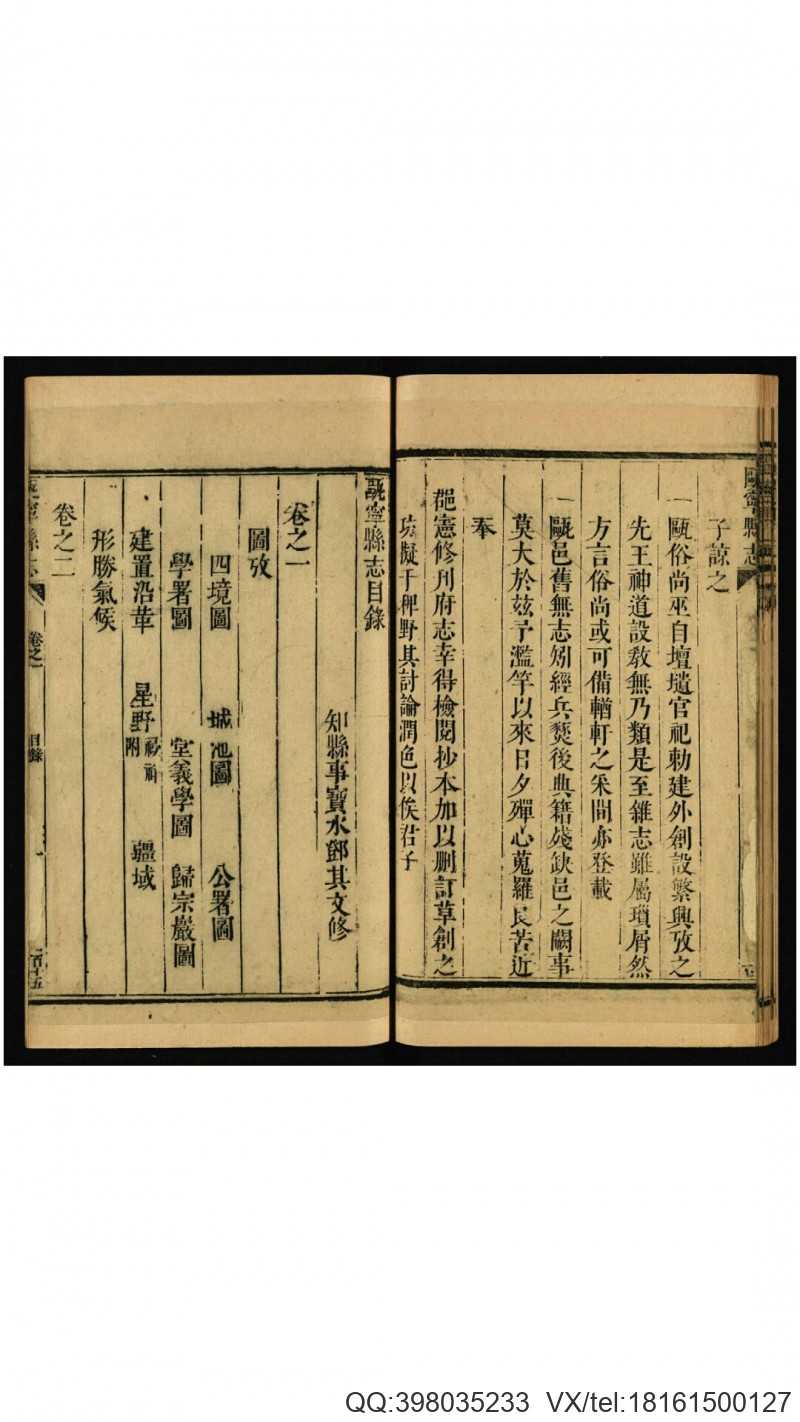 甌寧縣志
子諒之
一甌俗尚巫自壇壝官祀勅建外創設繁興攷之
先王神道設教無乃類是至雜志雖屬瑣屑然
方言俗尚或可備輶軒之采間亦登載
一甌邑舊無志矧經兵燹後典籍殘缺邑之闕事
莫大於茲予濫竽以來日夕殫心蒐羅良苦近
奉
郡憲修刋府志幸得檢閱抄本加以删訂草創之
功擬于稗野其討論潤色以俟君子
甌寧縣志目錄
知縣事寶水鄧其文修
卷之一
圖攷
四境圖 城池圖 公署圖
學署圖 堂義學圖 歸宗巖圖
建置沿革 星野 祲祥附 疆域
形勝氣候
卷之二
甌寧縣志 卷之一 目錄 一 一百十五
QQ:398035233 VX/tel:18161500127